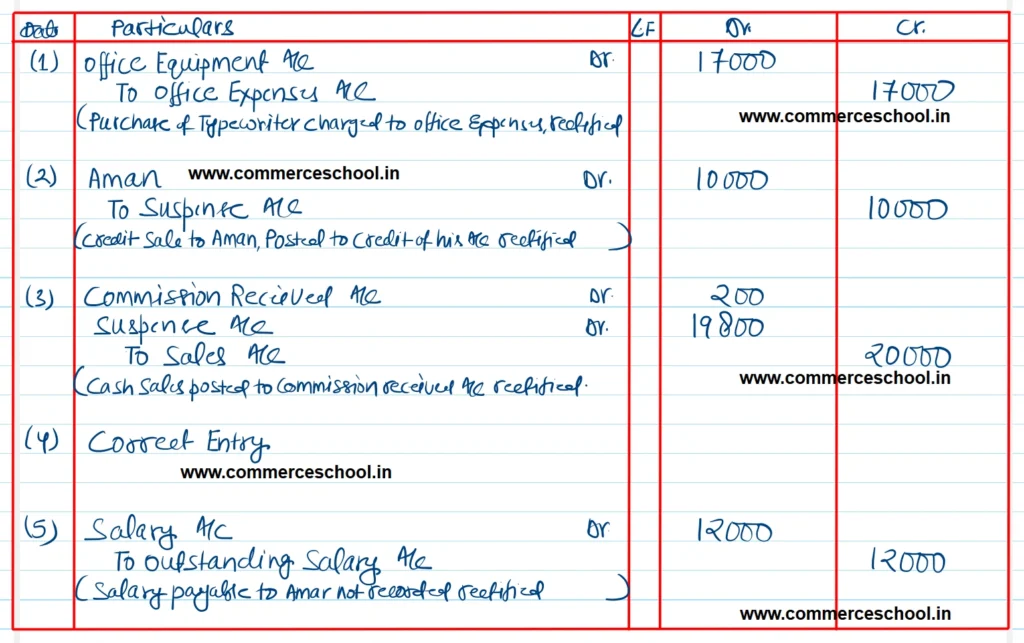 Date Particulars L.F Dr. Cr.
(1) Office Equipment A/c Dr. 17000
To Office Expenses A/c 17000
(Purchase of Typewriter charged to office Expenses, rectified
www.commerceschool.in
(2) Aman www.commerceschool.in Dr. 10000
To Suspense A/c 10000
(Credit Sale to Aman, Posted to Credit of his A/c rectified )
(3) Commission Recieved A/c Dr. 200
Suspence A/c Dr. 19800
To Sales A/c 20000
(Cash Sales posted to Commission received A/c rectified.
www.commerceschool.in
(4) Correct Entry
www.commerceschool.in
(5) Salary A/c Dr 12000
To Outstanding Salary A/c 12000
(Salary payable to Amar not recorded rectified )
www.commerceschool.in